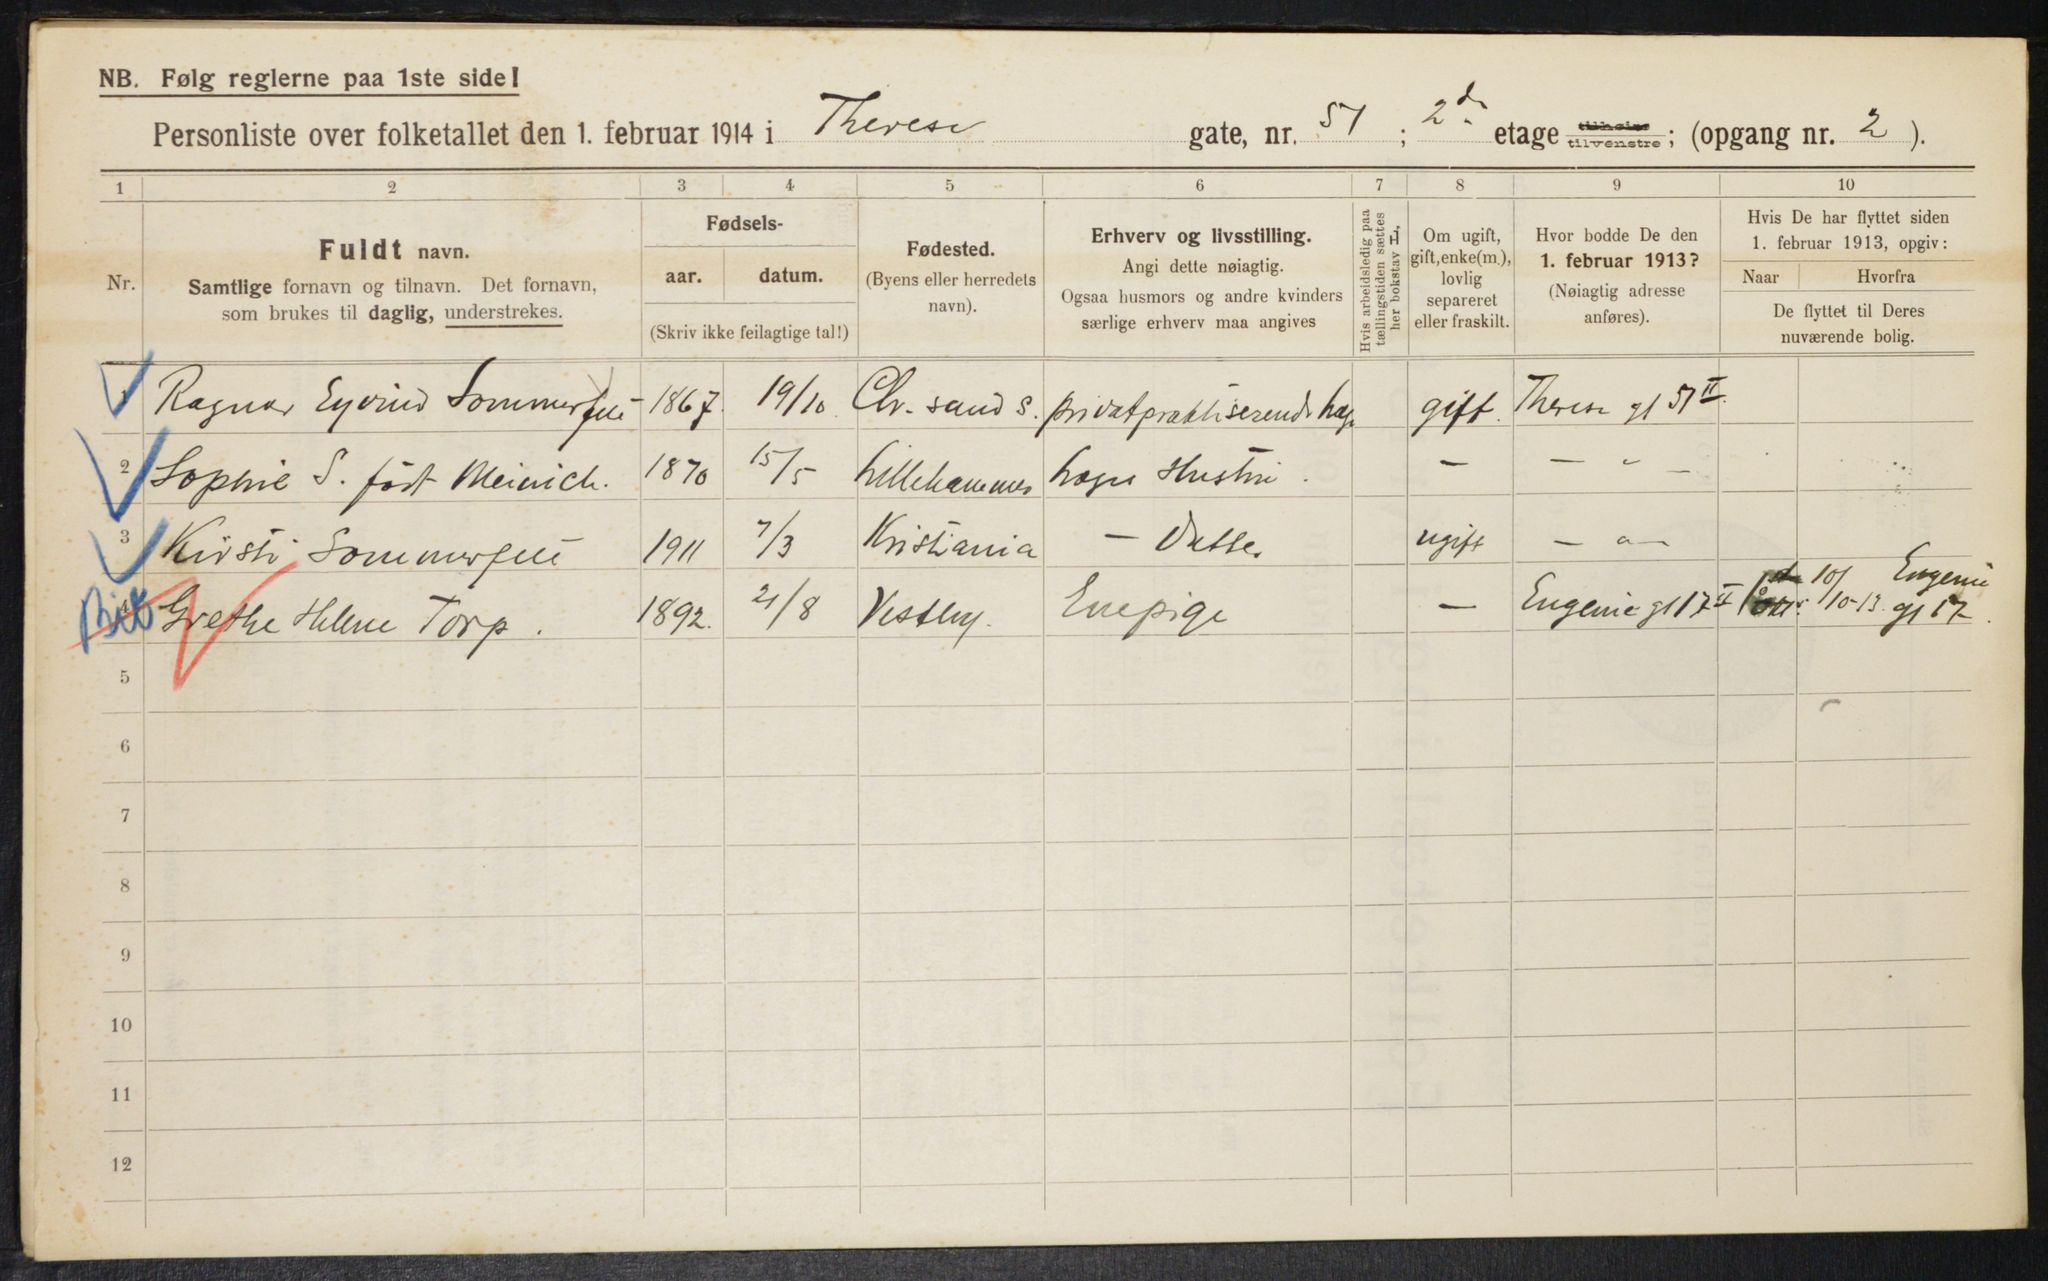 NB. Følg reglerne paa 1ste side!
Personliste over folketallet den 1. februar 1914 i Therese gate, nr. 51 ; 2den etage tilhøire tilvenstre ; (opgang nr. 2 ).
1 2 3 4 5 6 7 8 9 10
Nr.
Fuldt navn.
Samtlige fornavn og tilnavn. Det fornavn,
som brukes til daglig, understrekes.
Fødsels-
aar. datum.
(Skriv ikke feilagtige tal!)
Fødested.
(Byens eller herredets
navn).
Erhverv og livsstilling.
Angi dette nøiagtig.
Ogsaa husmors og andre kvinders
særlige erhverv maa angives
Hvis arbeidsledig paa
tællingstiden sættes
her bokstav L.
Om ugift,
gift, enke(m.),
lovlig
separeret
eller fraskilt.
Hvor bodde De den
1. februar 1913?
(Nøiagtig adresse
anføres).
Hvis De har flyttet siden
1. februar 1913, opgiv:
Naar Hvorfra
De flyttet til Deres
nuværende bolig.
1 Ragnar Eyvind Sommerfelt 1867. 19/10 Chr. sand S. privatpraktiserende læge gift. Therese gt 51 II.
2 Sophie S. født Meinich. 1870 15/5 Lillehammer Læges Hustru. — — " —
3 Kirsti Sommerfelt 1911 7/3 Kristiania — Datter ugift — " —
4 Grethe Helene Torp. 1892. 21/8 Vestby. Enepige — Eugenie gt 17 II 10/10-13. Eugenie gt 17.
5
6
7
8
9
10
11
12